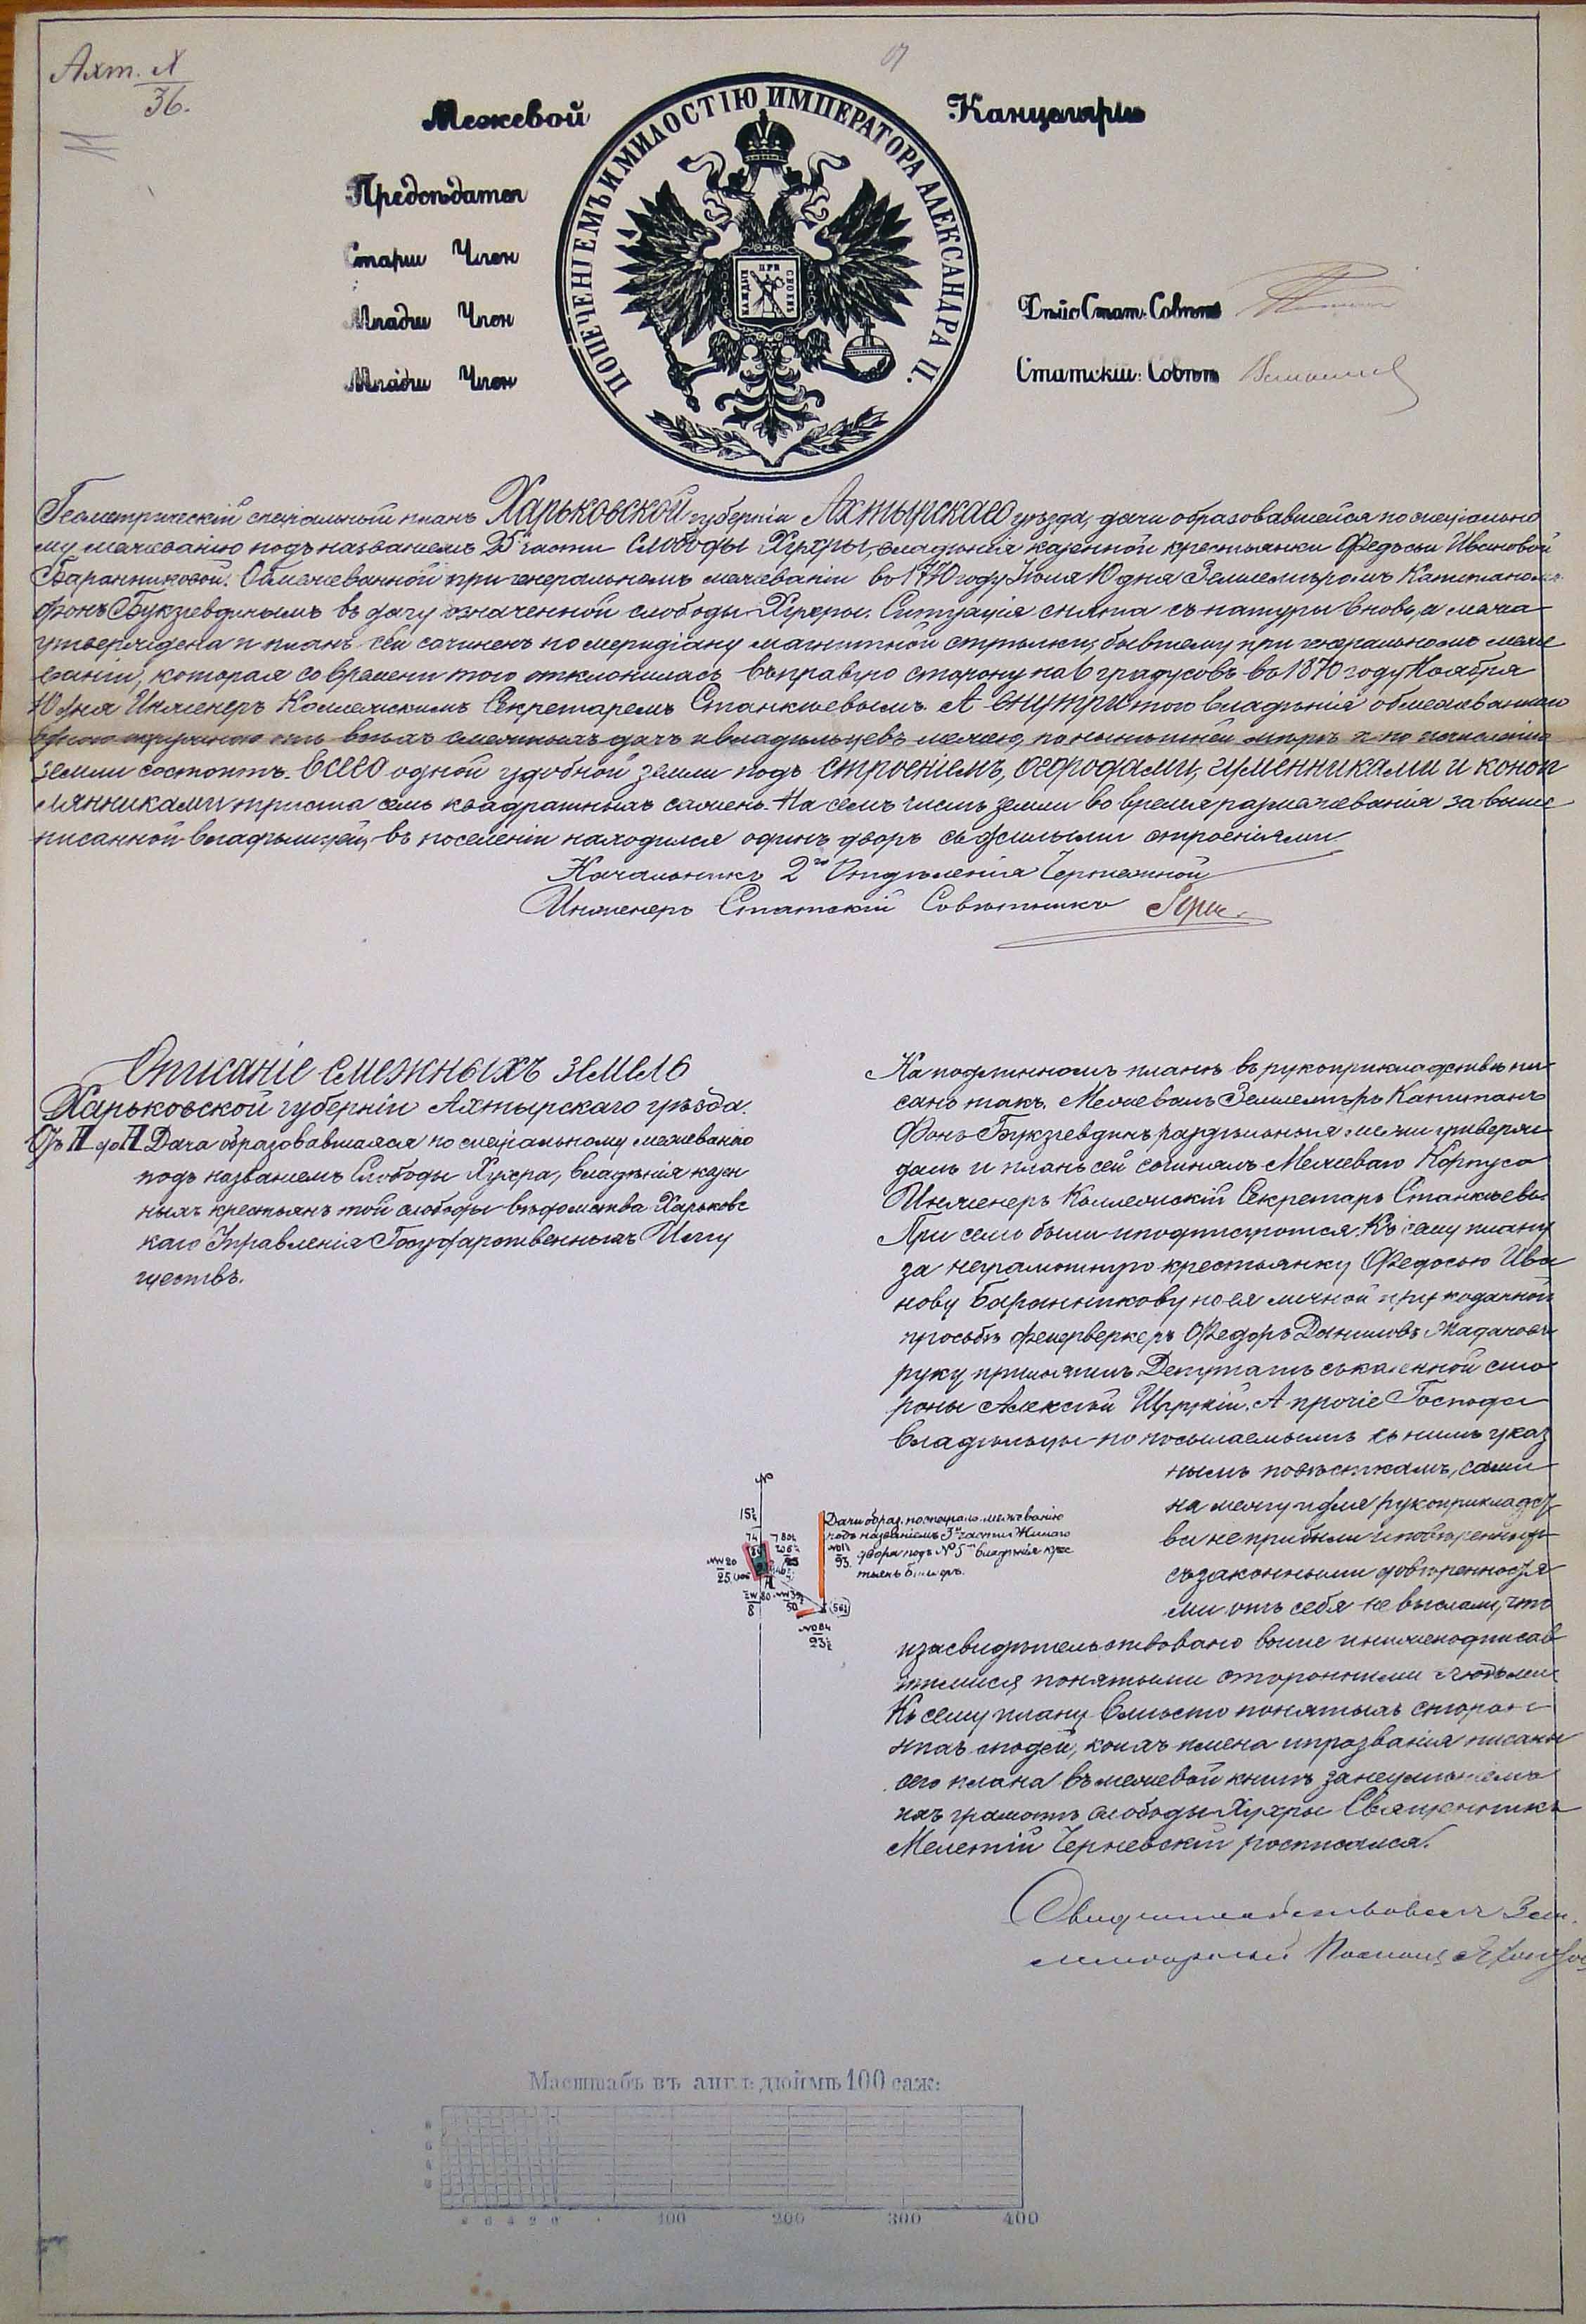 Ахт. N
36.
Межевой Канцеляріи
ПОПЕЧЕНІЕМЪ И МИЛОСТІЮ ИМПЕРАТОРА АЛЕКСАНДРА II.
Предсѣдател
Старш Член
Младш Член
Дѣйс Стат: Совѣт
Младш Член
Статскій: Совѣт
Геометрическій спеціальный планъ Харьковской губерніи Ахтырскаго уѣзда, дачи образовавшейся по спеціально
му межеванію подъ названіемъ части Слободы Хухры, владѣнія казенной крестьянки Ѳедосьи Ивановой
Баранниковой. Обмежеванной при генеральномъ межеваніи въ году Іюля 10 дня Землемѣромъ Капитаномъ
фонъ Букзгевденымъ въ дачу означенной слободы Хухры. Ситуація снята съ натуры вновь, а межа
утверждена и планъ сей сочиненъ по меридіану магнитной стрѣлки, бывшему при генеральномъ меже
ваніи, которая со времени того отклонилась въ правую сторону на 6 градусовъ въ 1870 году Ноября
10 дня Инженеръ Коллежскимъ Секретаремъ Станкѣевымъ. А внутри того владѣнія обмежеваннаго
одною окружною отъ всѣхъ смежныхъ дачъ и владѣльцевъ межею, по нынѣшней мѣрѣ и по исчисленію
земли состоитъ. всего одной удобной земли подъ строеніемъ, огородами, гуменниками и коноп
лянниками триста семь квадратныхъ сажень. На семъ числѣ земли во время размежеванія за выше
писанной владѣлицей, въ поселеніи находился одинъ дворъ съ жилыми строеніями.
Начальникъ 2го Отдѣленія Чертежной
Инженеръ Статскій Совѣтникъ
Описаніе смежныхъ земель
Харьковской губерніи Ахтырскаго уѣзда.
Отъ А до А Дача образовавшаяся по спеціальному межеванію
подъ названіемъ Слободы Хухра, владѣнія казен
ныхъ крестьянъ той слободы вѣдомства Харьковс
каго Управленія Государственныхъ Иму
ществъ.
На подлинномъ планѣ въ рукоприкладствѣ пи
сано такъ. Межевалъ Землемѣръ Капитанъ
Фонъ Букзгевдинъ, раздѣльныя межи утверж
далъ и планъ сей сочинялъ Межеваго Корпуса
Инженеръ Коллежскій Секретарь Станкѣевъ.
При семъ были и подписуются. Къ сему плану
за неграмотную крестьянку Ѳедосью Ива
нову Баранникову по ея личной и рукоданной
прозьбѣ фейерверкеръ Ѳедоръ Даниловъ
руку приложилъ. Депутатъ съ казенной сто
роны Алексѣй. А прочіе Господа
владѣльцы по посылаемымъ къ нимъ указ
нымъ повѣсткамъ, сами
на межу и для рукоприкладст
ва не прибыли и повѣренныхъ
съ законными довѣренностя
ми отъ себя не выслали, что
и засвидѣтельствовано выше и нижеподписав
шимися понятыми сторонними людьми
Къ сему плану вмѣсто понятыхъ сторон
нихъ людей, коихъ имена и прозванія писаны
сего плана въ межевой книгѣ за неумѣніемъ
ихъ грамотѣ слободы Хухры Священникъ
Мелетій Черневскій росписался.
Дачи образ. по спеціал. межеванію
подъ названіемъ 3й части Жилаго
двора подъ № 5м владѣнія крес
тьянъ
Масштабъ въ англ: дюймѣ 100 саж:
100 200 300 400